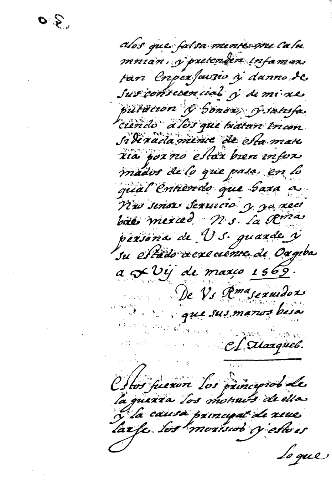 a los que falsamente me calu
mnian, y pretenden infamar
tan en perjuizio y danno de
sus consciencias y de mi re
putacion y honor, y satisfa
ciendo a los que tratan incon
sideradamente de esta mate
ria por no estar bien infor
mados de lo que pasa en lo
qual entiendo que hara a
Nro señor servicio y yo reci
bire merced. N. S. la Rma
persona de V S. guarde y
su estado acreciente de Orgiba
a XVij de março 1569.
De Vs Rma servidor
que sus manos besa
El Marques.
Estos fueron los principios de
la guerra los motivos de ella
y la causa principal de reve
larse los moriscos y esto es
lo que